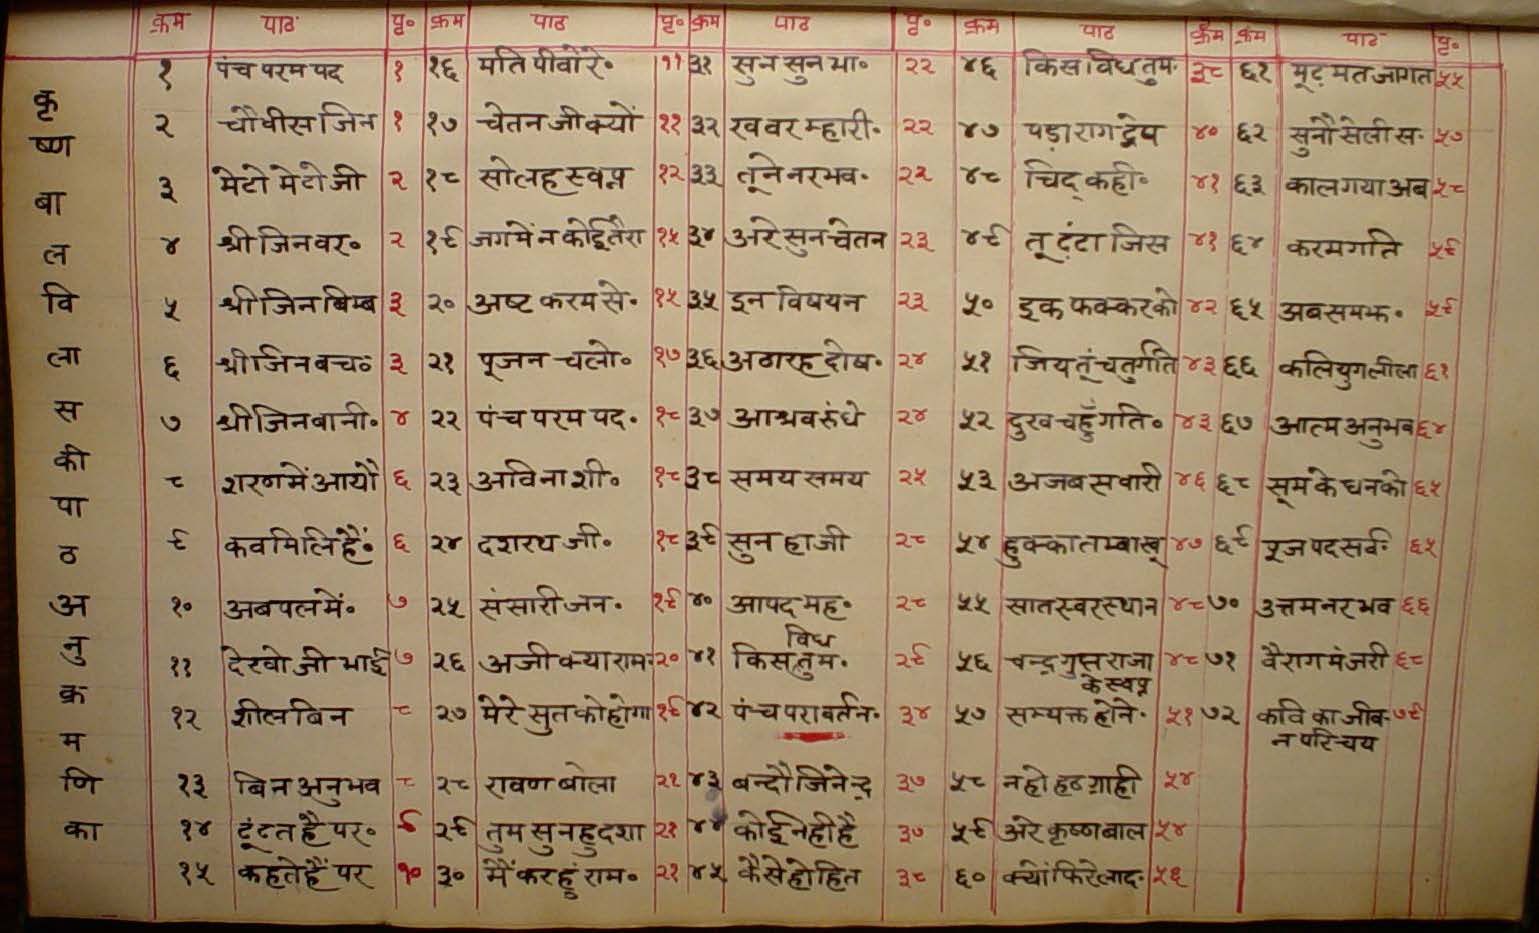 क्रम पाठ पृ० क्रम पाठ पृ० क्रम पाठ पृ० क्रम पाठ क्रम क्रम पाठ पृ०
कृष्ण बाल विलास की पाठ अनुक्रमणिका
१ पंच परम पद १ १६ मति पीवो रे० ११ ३१ सुन सुन भा० २२ ४६ किस विध तुम० ३८ ६१ मूढ़ मत जागत ५५
२ चौवीस जिन १ १७ चेतन जी क्यों ११ ३२ खबर म्हारी० २२ ४७ पड़ा राग द्वेष ४० ६२ सुनौ सेली स० ५७
३ मेटो मेटो जी २ १८ सोलह स्वप्न १२ ३३ तूने नर भव० २२ ४८ चिद् कही० ४१ ६३ काल गया अब ५८
४ श्री जिनवर० २ १९ जग में न कोई तेरा १५ ३४ अरे सुन चेतन २३ ४९ तू टंटा जिस ४१ ६४ करम गति ५९
५ श्री जिन बिम्ब ३ २० अष्ट करम से० १५ ३५ इन विषयन २३ ५० इक फक्कर को ४२ ६५ अब समझ० ५९
६ श्री जिन बच० ३ २१ पूजन चलो० १७ ३६ अठारह दोष० २४ ५१ जिय तूं चतुर्गति ४३ ६६ कलियुग लीला ६१
७ श्री जिन बानी० ४ २२ पंच परम पद० १८ ३७ आश्रव रुंधे २४ ५२ दुख चहुँ गति० ४३ ६७ आत्म अनुभव ६४
८ शरण में आयौ ६ २३ अविनाशी० १८ ३८ समय समय २५ ५३ अजब सवारी ४६ ६८ सूम के धन को ६५
९ कव मिलि हैं० ६ २४ दशरथ जी० १८ ३९ सुन हा जी २८ ५४ हुक्का तम्बाखू ४७ ६९ पूज पद सर्व० ६५
१० अब पल में० ७ २५ संसारी जन० १९ ४० आपद मह० २८ ५५ सात स्वर स्थान ४८ ७० उत्तम नर भव ६६
११ देखो जी भाई ७ २६ अजी क्या राम० २० ४१ किस विध तुम० २९ ५६ चन्द्रगुप्त राजा के स्वप्न ४८ ७१ वैराग मंजरी ६८
१२ शील बिन ८ २७ मेरे सुत को होगा १९ ४२ पंच परावर्तन० ३४ ५७ सम्यक्त होने० ५१ ७२ कवि का जीवन परिचय ७९
१३ बिन अनुभव ८ २८ रावण बोला २१ ४३ बन्दौ जिनेन्द्र ३७ ५८ न हो हठ ग्राही ५४
१४ ढूंढत है पर० ९ २९ तुम सुनहु दशा २१ ४४ कोई नहीं है ३७ ५९ अरे कृष्ण बाल ५४
१५ कहते हैं पर १० ३० मैं कर हूं राम० २१ ४५ कैसे हो हित ३८ ६० क्यों फिरे लाद० ५६